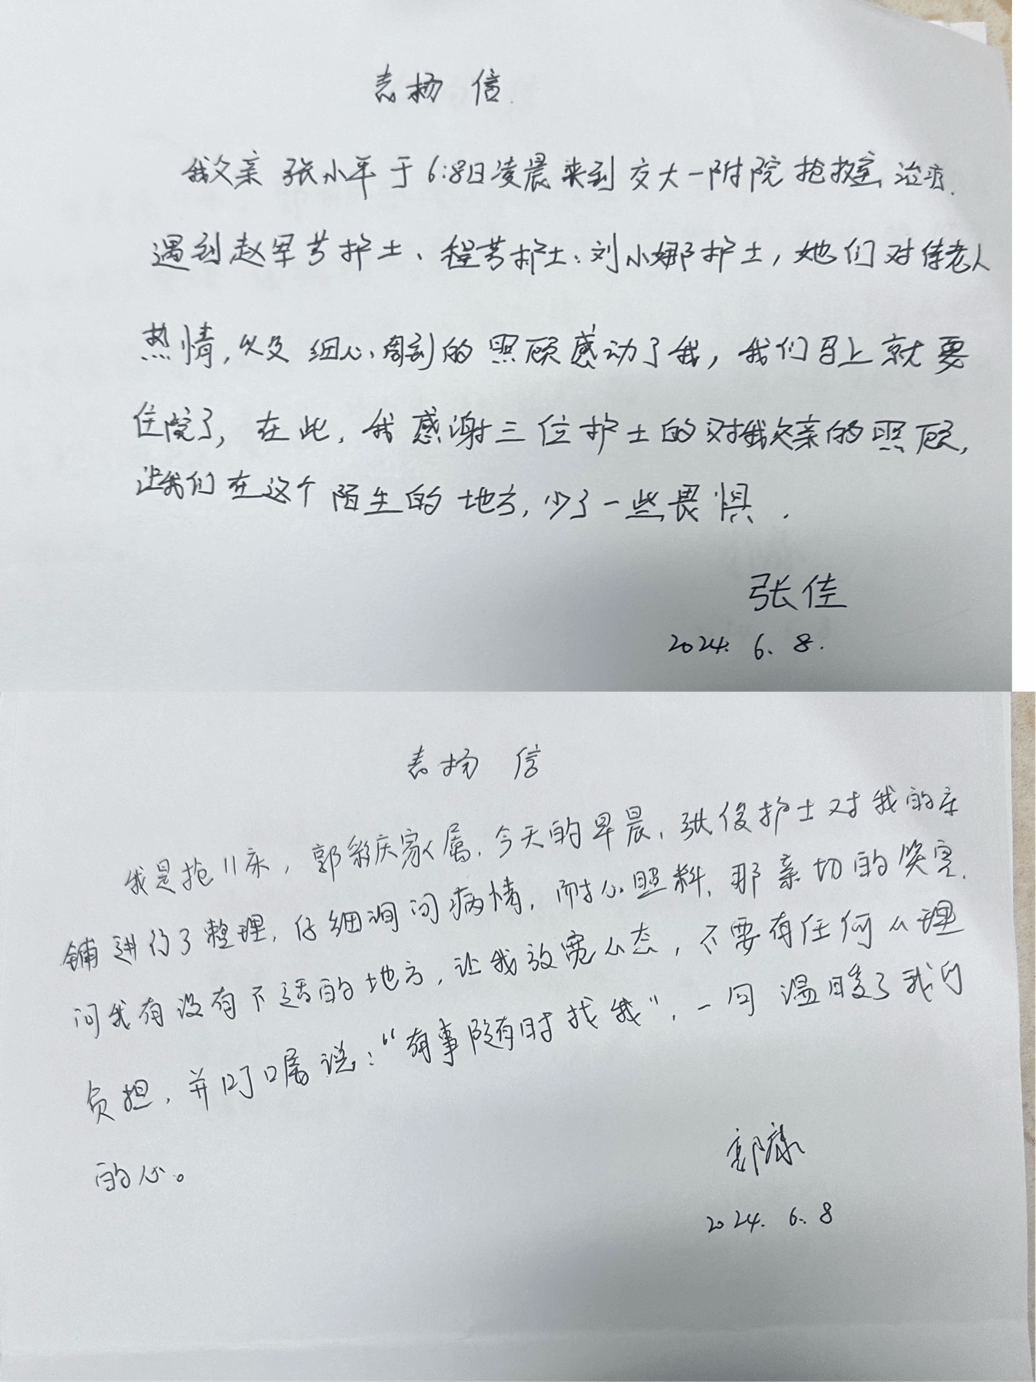 表扬信
我父亲张小平于6:8日凌晨来到交大一附院抢救室治疗.
遇到赵军芳护士、程芳护士、刘小娜护士，她们对待老人
热情，以及细心、周到的照顾感动了我，我们马上就要
住院了，在此，我感谢三位护士的对我父亲的照顾，
让我们在这个陌生的地方，少了一些畏惧.
张佳
2024.6.8.
表扬信
我是抢11床，郭彩庆家属，今天的早晨，张俊护士对我的床
铺进行了整理，仔细询问病情，耐心照料，那亲切的笑容，
问我有没有不适的地方，让我放宽心态，不要有任何心理
负担，并叮嘱说：“有事随时找我”，一句温暖了我们
的心。
郭康
2024.6.8